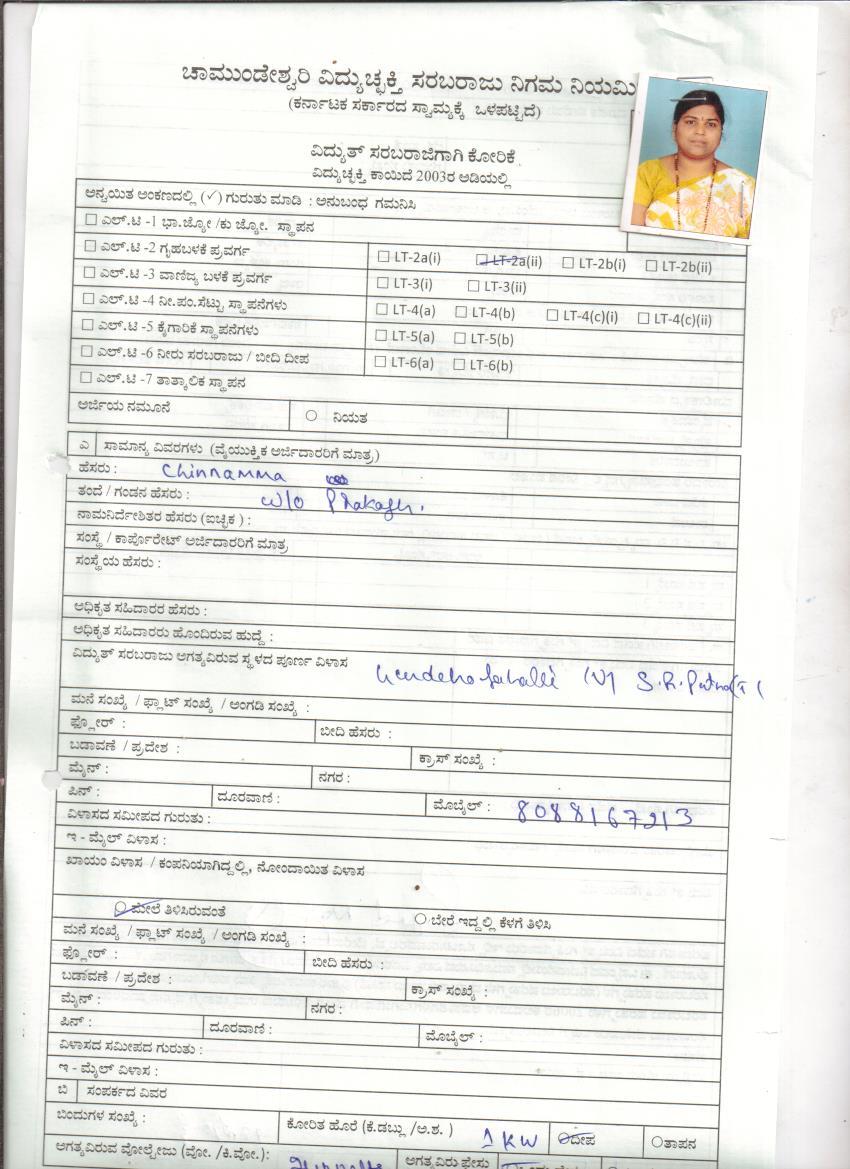 ಚಾಮುಂಡೇಶ್ವರಿ ವಿದ್ಯುಚ್ಛಕ್ತಿ ಸರಬರಾಜು ನಿಗಮ ನಿಯಮಿ
(ಕರ್ನಾಟಕ ಸರ್ಕಾರದ ಸ್ವಾಮ್ಯಕ್ಕೆ ಒಳಪಟ್ಟಿದೆ)
ವಿದ್ಯುತ್ ಸರಬರಾಜಿಗಾಗಿ ಕೋರಿಕೆ
ವಿದ್ಯುಚ್ಛಕ್ತಿ ಕಾಯಿದೆ 2003ರ ಅಡಿಯಲ್ಲಿ
ಅನ್ವಯಿತ ಅಂಕಣದಲ್ಲಿ (✓) ಗುರುತು ಮಾಡಿ : ಅನುಬಂಧ ಗಮನಿಸಿ
☐ ಎಲ್.ಟಿ -1 ಭಾ.ಜ್ಯೋ /ಕು ಜ್ಯೋ. ಸ್ಥಾಪನ
☐ ಎಲ್.ಟಿ -2 ಗೃಹಬಳಕೆ ಪ್ರವರ್ಗ ☐ LT-2a(i) ☐ LT-2a(ii) ☐ LT-2b(i) ☐ LT-2b(ii)
☐ ಎಲ್.ಟಿ -3 ವಾಣಿಜ್ಯ ಬಳಕೆ ಪ್ರವರ್ಗ ☐ LT-3(i) ☐ LT-3(ii)
☐ ಎಲ್.ಟಿ -4 ನೀ.ಪಂ.ಸೆಟ್ಟು ಸ್ಥಾಪನೆಗಳು ☐ LT-4(a) ☐ LT-4(b) ☐ LT-4(c)(i) ☐ LT-4(c)(ii)
☐ ಎಲ್.ಟಿ -5 ಕೈಗಾರಿಕೆ ಸ್ಥಾಪನೆಗಳು ☐ LT-5(a) ☐ LT-5(b)
☐ ಎಲ್.ಟಿ -6 ನೀರು ಸರಬರಾಜು / ಬೀದಿ ದೀಪ ☐ LT-6(a) ☐ LT-6(b)
☐ ಎಲ್.ಟಿ -7 ತಾತ್ಕಾಲಿಕ ಸ್ಥಾಪನ
ಅರ್ಜಿಯ ನಮೂನೆ ○ ನಿಯತ
ಎ ಸಾಮಾನ್ಯ ವಿವರಗಳು (ವೈಯುಕ್ತಿಕ ಅರ್ಜಿದಾರರಿಗೆ ಮಾತ್ರ)
ಹೆಸರು : Chinnamma
ತಂದೆ / ಗಂಡನ ಹೆಸರು : W/o Prakash.
ನಾಮನಿರ್ದೇಶಿತರ ಹೆಸರು (ಐಚ್ಛಿಕ) :
ಸಂಸ್ಥೆ / ಕಾರ್ಪೊರೇಟ್ ಅರ್ಜಿದಾರರಿಗೆ ಮಾತ್ರ
ಸಂಸ್ಥೆಯ ಹೆಸರು :
ಅಧಿಕೃತ ಸಹಿದಾರರ ಹೆಸರು :
ಅಧಿಕೃತ ಸಹಿದಾರರು ಹೊಂದಿರುವ ಹುದ್ದೆ :
ವಿದ್ಯುತ್ ಸರಬರಾಜು ಅಗತ್ಯವಿರುವ ಸ್ಥಳದ ಪೂರ್ಣ ವಿಳಾಸ (V) S.R.
ಮನೆ ಸಂಖ್ಯೆ / ಫ್ಲಾಟ್ ಸಂಖ್ಯೆ / ಅಂಗಡಿ ಸಂಖ್ಯೆ :
ಫ್ಲೋರ್ : ಬೀದಿ ಹೆಸರು :
ಬಡಾವಣೆ / ಪ್ರದೇಶ : ಕ್ರಾಸ್ ಸಂಖ್ಯೆ :
ಮೈನ್ : ನಗರ :
ಪಿನ್ : ದೂರವಾಣಿ : ಮೊಬೈಲ್ : 8088167213
ವಿಳಾಸದ ಸಮೀಪದ ಗುರುತು :
ಇ - ಮೈಲ್ ವಿಳಾಸ :
ಖಾಯಂ ವಿಳಾಸ / ಕಂಪನಿಯಾಗಿದ್ದಲ್ಲಿ, ನೋಂದಾಯಿತ ವಿಳಾಸ
○ ಮೇಲೆ ತಿಳಿಸಿರುವಂತೆ ○ ಬೇರೆ ಇದ್ದಲ್ಲಿ ಕೆಳಗೆ ತಿಳಿಸಿ
ಮನೆ ಸಂಖ್ಯೆ / ಫ್ಲಾಟ್ ಸಂಖ್ಯೆ / ಅಂಗಡಿ ಸಂಖ್ಯೆ :
ಫ್ಲೋರ್ : ಬೀದಿ ಹೆಸರು :
ಬಡಾವಣೆ / ಪ್ರದೇಶ : ಕ್ರಾಸ್ ಸಂಖ್ಯೆ :
ಮೈನ್ : ನಗರ :
ಪಿನ್ : ದೂರವಾಣಿ : ಮೊಬೈಲ್ :
ವಿಳಾಸದ ಸಮೀಪದ ಗುರುತು :
ಇ - ಮೈಲ್ ವಿಳಾಸ :
ಬಿ ಸಂಪರ್ಕದ ವಿವರ
ಬಿಂದುಗಳ ಸಂಖ್ಯೆ : ಕೋರಿತ ಹೊರೆ (ಕೆ.ಡಬ್ಲು /ಅ.ಶ. ) 1 KW ○ ದೀಪ ○ ತಾಪನ
ಅಗತ್ಯವಿರುವ ವೋಲ್ಟೇಜು (ವೋ. /ಕಿ.ವೋ.): ಅಗತ್ಯವಿರು ಫೇಸು